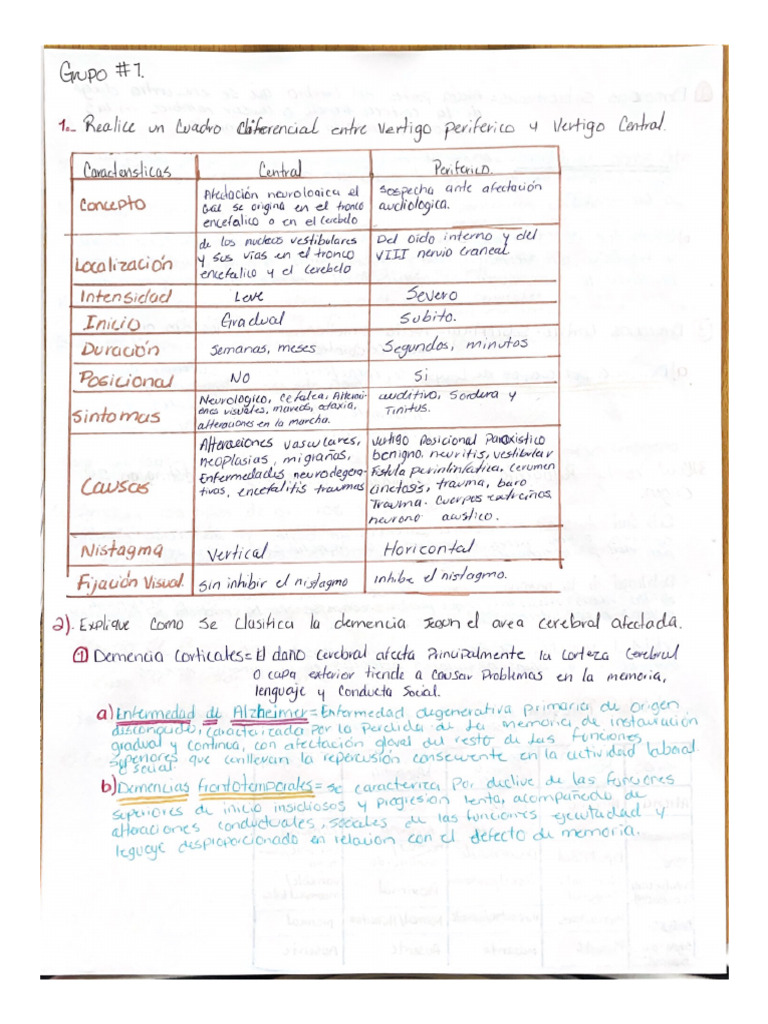 Grupo #1.
1.- Realice un Cuadro diferencial entre Vertigo periferico y Vertigo Central.
Caracteristicas Central Periferico.
Concepto Afectación neurologica el cual se origina en el tronco encefalico o en el cerebelo Sospecha ante afectación audiologica.
Localización de los nucleos vestibulares y sus vías en el tronco encefalico y el cerebelo Del oido interno y del VIII nervio craneal.
Intensidad Leve Severo
Inicio Gradual Subito.
Duración Semanas, meses Segundos, minutos
Posicional NO Si
Sintomas Neurologico, Cefalea, Alteraciones visuales, mareos, ataxia, alteraciones en la marcha. auditivo, Sordera y Tinitus.
Causas Alteraciones vasculares, neoplasias, migrañas, Enfermedades neurodegerativas, encefalitis traumas Vertigo Posicional Paroxistico benigno, neuritis, vestibular Fistula perinlinfatica, cerumen cinetasis, trauma, baro Trauma. Cuerpos extreinos neurono acustico.
Nistagma Vertical Horicontal
Fijación Visual. Sin inhibir el nistagmo inhibe el nistagmo.
2). Explique Como Se Clasifica la demencia segun el area cerebral afectada.
1 Demencia Corticales = El daño cerebral afecta Principalmente la corteza Cerebral
o capa exterior tiende a causar Problemas en la memoria,
lenguaje y Conducta Social.
a) Enfermedad de Alzheimer = Enfermedad degenerativa primaria de origen
desconocido, caracterizada por la Perdida de la memoria de instauración
gradual y continua, con afectación glovel del resto de las funciones
superiores que conllevan la repercusión consecuente en la actividad laboral
e social.
b) Demencias frontotemporales = se caracteriza Por declive de las funciones
superiores de inicio insidiosos y progresion lenta, acompañado de
altraciones conductuales, sociales de las funciones ejecutadad y
lenguaje desproporcionado en relacion con el defecto de memoria.